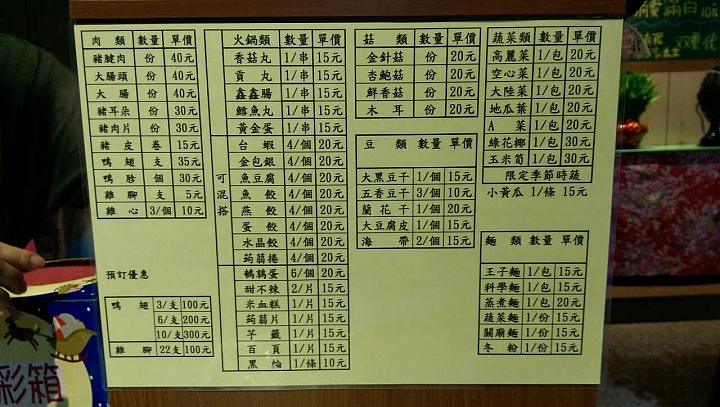 肉類 數量 單價
豬腱肉 份 40元
大腸頭 份 40元
大腸 份 40元
豬耳朵 份 30元
豬肉片 份 30元
豬皮 卷 15元
鴨翅 支 35元
鴨胗 個 30元
雞腳 支 5元
雞心 3/個 10元
預訂優惠
鴨翅 3/支 100元
6/支 200元
10/支 300元
雞腳 22支 100元
火鍋類 數量 單價
香菇丸 1/串 15元
貢丸 1/串 15元
鑫鑫腸 1/串 15元
鱈魚丸 1/串 15元
黃金蛋 1/串 15元
可混搭
台蝦 4/個 20元
金包銀 4/個 20元
魚豆腐 4/個 20元
魚餃 4/個 20元
燕餃 4/個 20元
蛋餃 4/個 20元
水晶餃 4/個 20元
蒟蒻捲 4/個 20元
鵪鶉蛋 6/個 20元
甜不辣 2/片 15元
米血糕 1/片 15元
蒟蒻片 1/片 15元
芋籤 1/片 15元
百頁 1/片 15元
黑輪 1/條 10元
菇類 數量 單價
金針菇 份 20元
杏鮑菇 份 20元
鮮香菇 份 20元
木耳 份 20元
豆類 數量 單價
大黑豆干 1/個 15元
五香豆干 3/個 10元
蘭花干 1/個 20元
大豆腐皮 1/個 15元
海帶 2/個 15元
蔬菜類 數量 單價
高麗菜 1/包 20元
空心菜 1/包 20元
大陸菜 1/包 20元
地瓜葉 1/包 20元
A菜 1/包 20元
綠花椰 1/包 30元
玉米筍 1/包 30元
限定季節時蔬
小黃瓜 1/條 15元
麵類 數量 單價
王子麵 1/包 15元
科學麵 1/包 15元
蒸煮麵 1/包 20元
蔬菜麵 1/份 15元
關廟麵 1/份 15元
冬粉 1/份 15元
彩箱